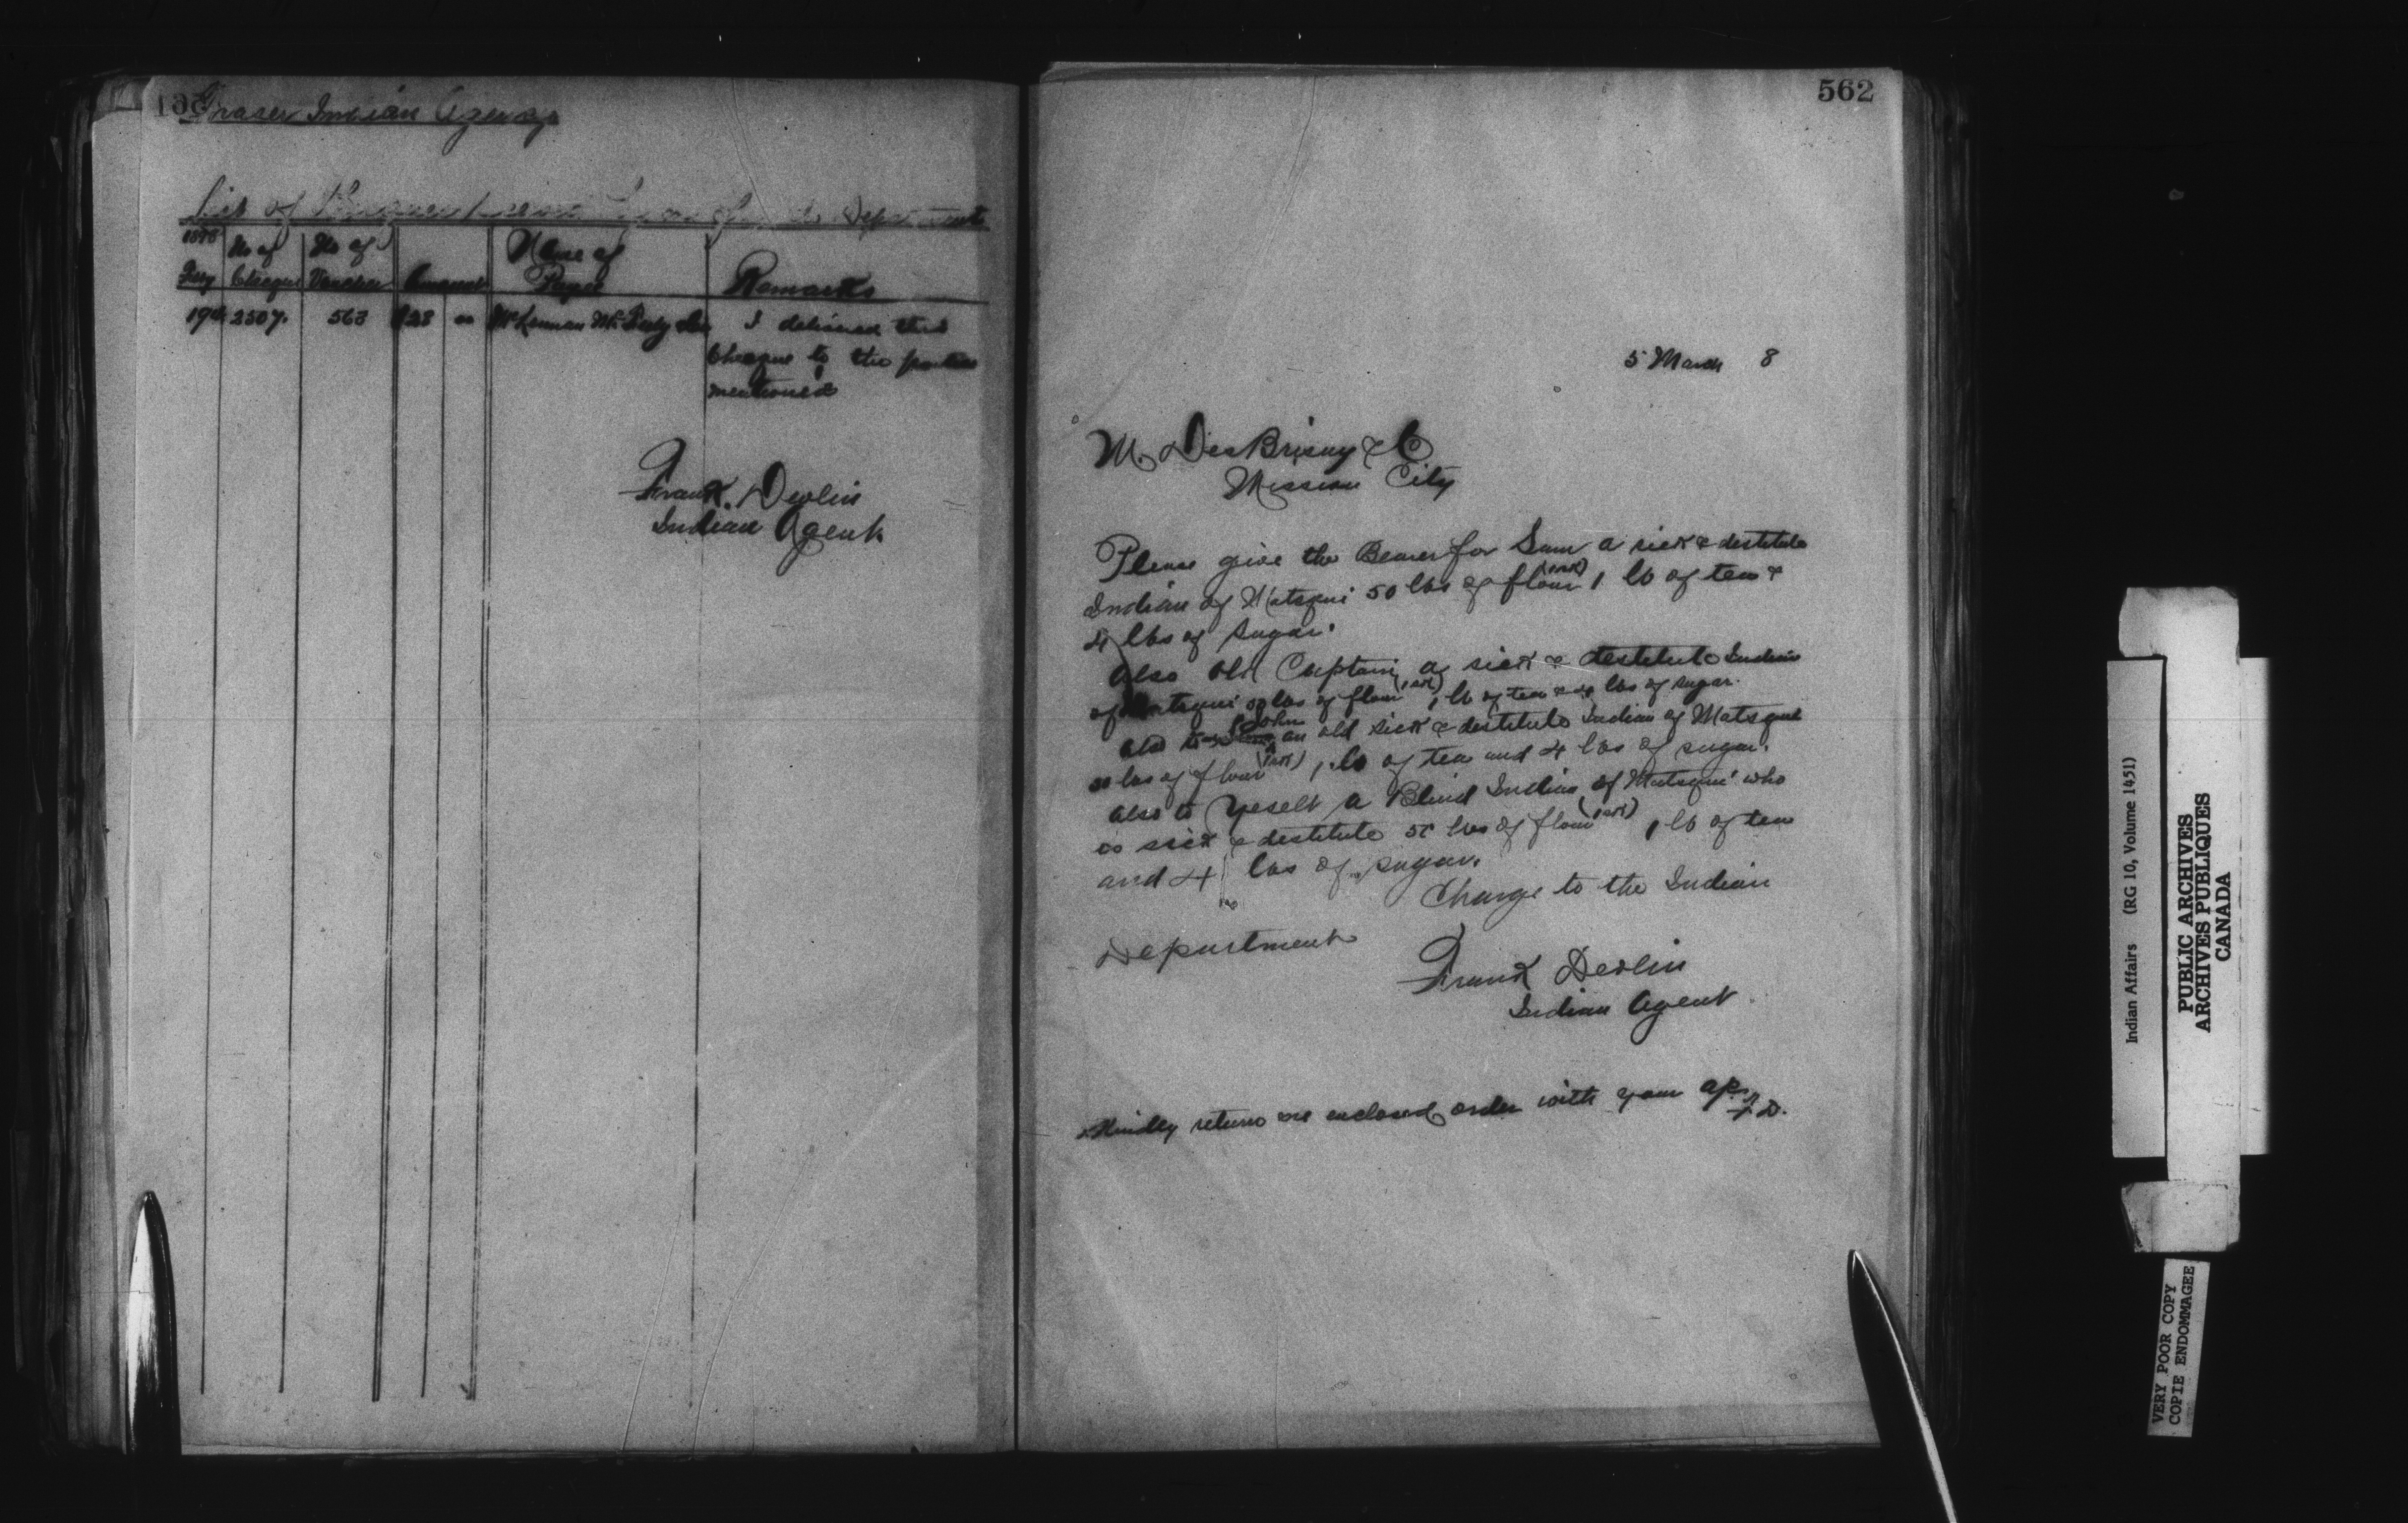 561
Fraser Indian Agency
List of Cheques received from the Department
1898
Feby
No of
Cheque
No of
Voucher
Amount
Name of
Payee
Remarks
19th 2507. 563 $28 00 McLennan McFeely &Co I delivered this
Cheque to the parties
mentioned
Frank. Devlin
Indian Agent
562
5 March 8
M. DesBrisay & Co
Mission City
Please give the Bearer for Sam a sick & destitute
Indian of Matsqui 50 lbs of flour (1 sak) 1 lb of tea &
4 lbs of sugar.
Also Old Captain a sick & destitute Indian
of Matsqui 50 lbs of flour (1 sak) 1 lb of tea & 4 lbs of sugar.
Also to John an old sick & destitute Indian of Matsqui
50 lbs of flour (1 sak) 1 lb of tea and 4 lbs of sugar.
Also to Yeselt a Blind Indian of Matsqui who
is sick & destitute 50 lbs of flour (1 sak) 1 lb of tea
and 4 lbs of sugar.
Charge to the Indian
Department
Frank Devlin
Indian Agent
Kindly return me enclosed order with your a/c
F.D.
Indian Affairs (RG 10, Volume 1451)
PUBLIC ARCHIVES
ARCHIVES PUBLIQUES
CANADA
VERY POOR COPY
COPIE ENDOMMAGEE